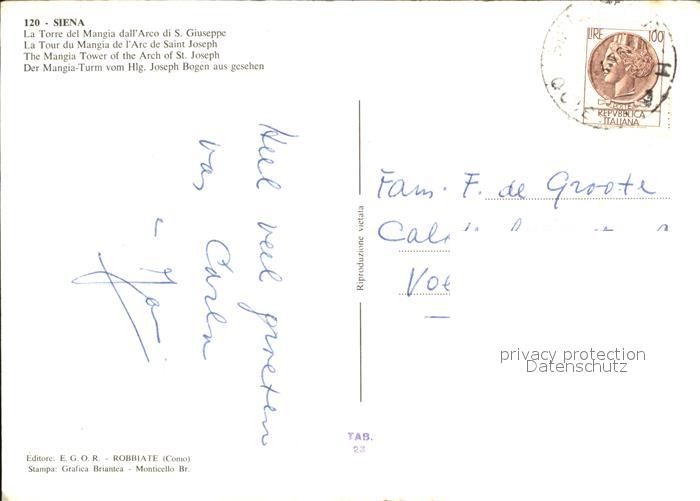 120 - SIENA
La Torre del Mangia dall'Arco di S. Giuseppe
La Tour du Mangia de l'Arc de Saint Joseph
The Mangia Tower of the Arch of St. Joseph
Der Mangia-Turm vom Hlg. Joseph Bogen aus gesehen
LIRE 100
REPVBBLICA
ITALIANA
Heel veel groeten
van
Carla
Fam. F. de Groote
Riproduzione vietata
privacy protection
Datenschutz
TAB.
23
Editore: E. G. O. R. - ROBBIATE (Como)
Stampa: Grafica Briantea - Monticello Br.